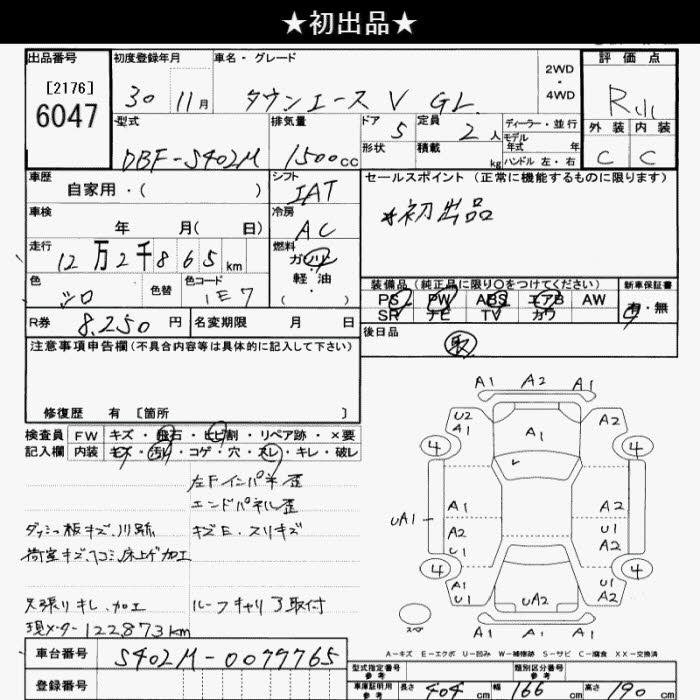 ★初出品★
出品番号
[2176]
6047
初度登録年月
30 11月
車名・グレード
タウンエース V GL
2WD
・
4WD
評価点
R
外装 内装
C C
型式
DBF-S402M
排気量
1500cc
ドア
5
定員
2人
ディーラー・並行
モデル
年式 年
形状
積載
kg
ハンドル 左・右
車歴
自家用・( )
シフト
IAT
セールスポイント (正常に機能するものに限ります)
*初出品
車検
年 月( 日)
冷房
AC
走行
12万2千865km
燃料
ガソリン
軽・油
・( )
色
シロ
色替
色コード
1E7
装備品 (純正品に限り○をつけてください)
PS PW ABS エアB AW
SR ナビ TV カワ
新車保証書
有・無
R券
8,250円
名変期限 月 日
後日品
取
注意事項申告欄(不具合内容等は具体的に記入して下さい)
修復歴 有 [箇所 ]
検査員
記入欄
FW キズ・飛石・ヒビ割・リペア跡・×要
内装 キズ・汚れ・コゲ・穴・スレ・キレ・破レ
左Fインパネ歪
エンドパネル歪
ダッシュ板キズ、川跡
キズE、スリキズ
荷室キズ、凹、床上ゲ加工
天張りキレ、加工
ルーフキャリア取付
現メーター122873km
車台番号
S402M-0079765
登録番号
A1 A2 A1
U2
A1
A2
4 A1 4
uA1
A1
A2
U1
A2
U1
A2
4 4
A1
U1
uA2
U1
A2
スペア
A1 A1 A1
A-キズ E-エクボ U-凹み W-補修跡 S-サビ C-腐食 XX-交換済
型式指定番号
参考
類別区分番号
参考
車庫証明用
参考
長さ 404cm 幅 166cm 高さ 190cm